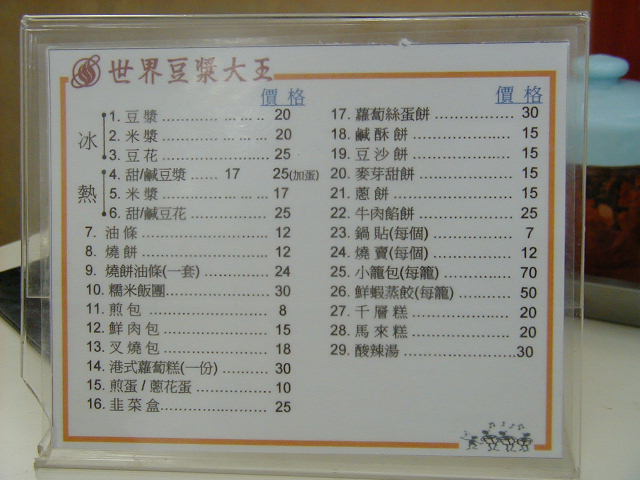 世界豆漿大王
價格
冰
1. 豆漿 .............. ... ... .. 20
2. 米漿 .............. ... ... .. 20
3. 豆花 ........................ 25
熱
4. 甜/鹹豆漿 ...... 17 25(加蛋)
5. 米漿 ........................ 17
6. 甜/鹹豆花 .................. 25
7. 油條 ........................... 12
8. 燒餅 ........................... 12
9. 燒餅油條(一套) ............... 24
10. 糯米飯團 ..................... 30
11. 煎包 ........................... 8
12. 鮮肉包 ........................ 15
13. 叉燒包 ........................ 18
14. 港式蘿蔔糕(一份) ............ 30
15. 煎蛋 / 蔥花蛋 ............... 10
16. 韭菜盒 ........................ 25
價格
17. 蘿蔔絲蛋餅 .................. 30
18. 鹹酥餅 ........................ 15
19. 豆沙餅 ........................ 15
20. 麥芽甜餅 ..................... 15
21. 蔥餅 ........................... 15
22. 牛肉餡餅 ..................... 25
23. 鍋貼(每個) .................. 7
24. 燒賣(每個) .................. 12
25. 小籠包(每籠) ............... 70
26. 鮮蝦蒸餃(每籠) ............ 50
27. 千層糕 ........................ 20
28. 馬來糕 ........................ 20
29. 酸辣湯 ........................ 30